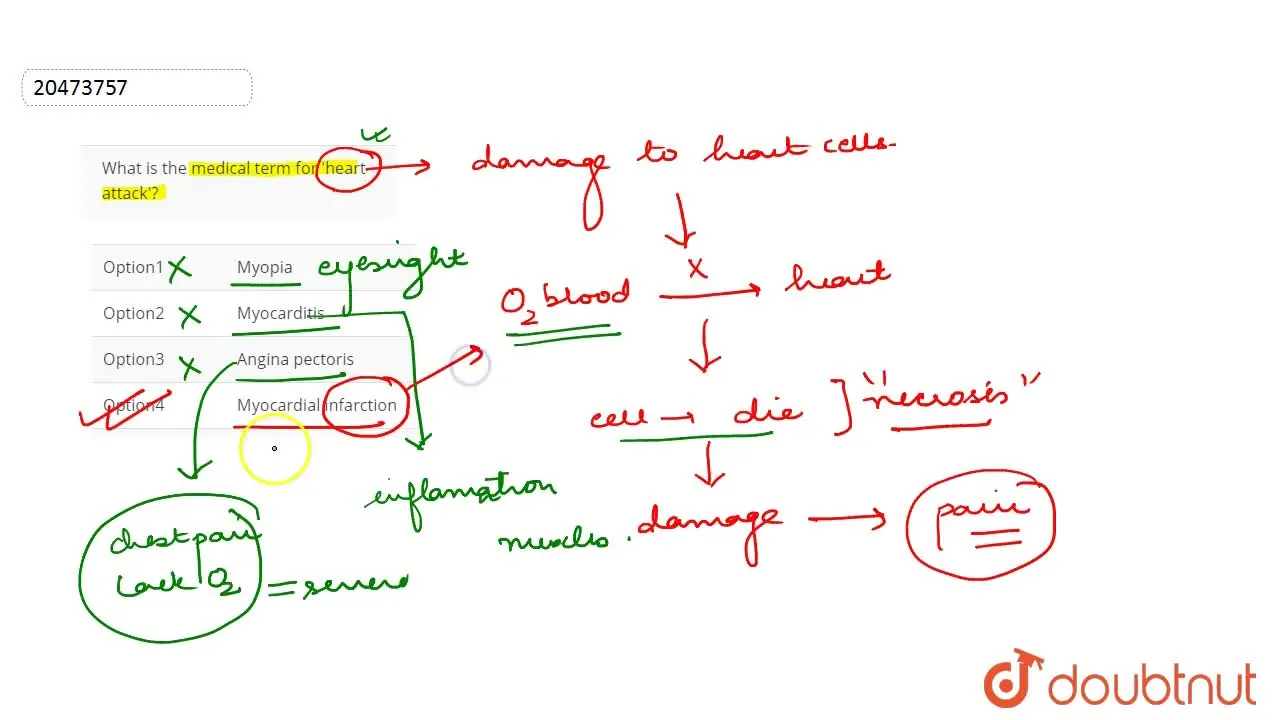 20473757
What is the medical term for 'heart
attack'?
damage to heart cells.
Option1 X Myopia eyesight
Option2 X Myocarditis
Option3 X Angina pectoris
Option4 Myocardial infarction
O2 blood X heart
cell → die ] "necrosis"
damage → pain
inflamation
chest pain
Lack O2 = severe
doubtnut